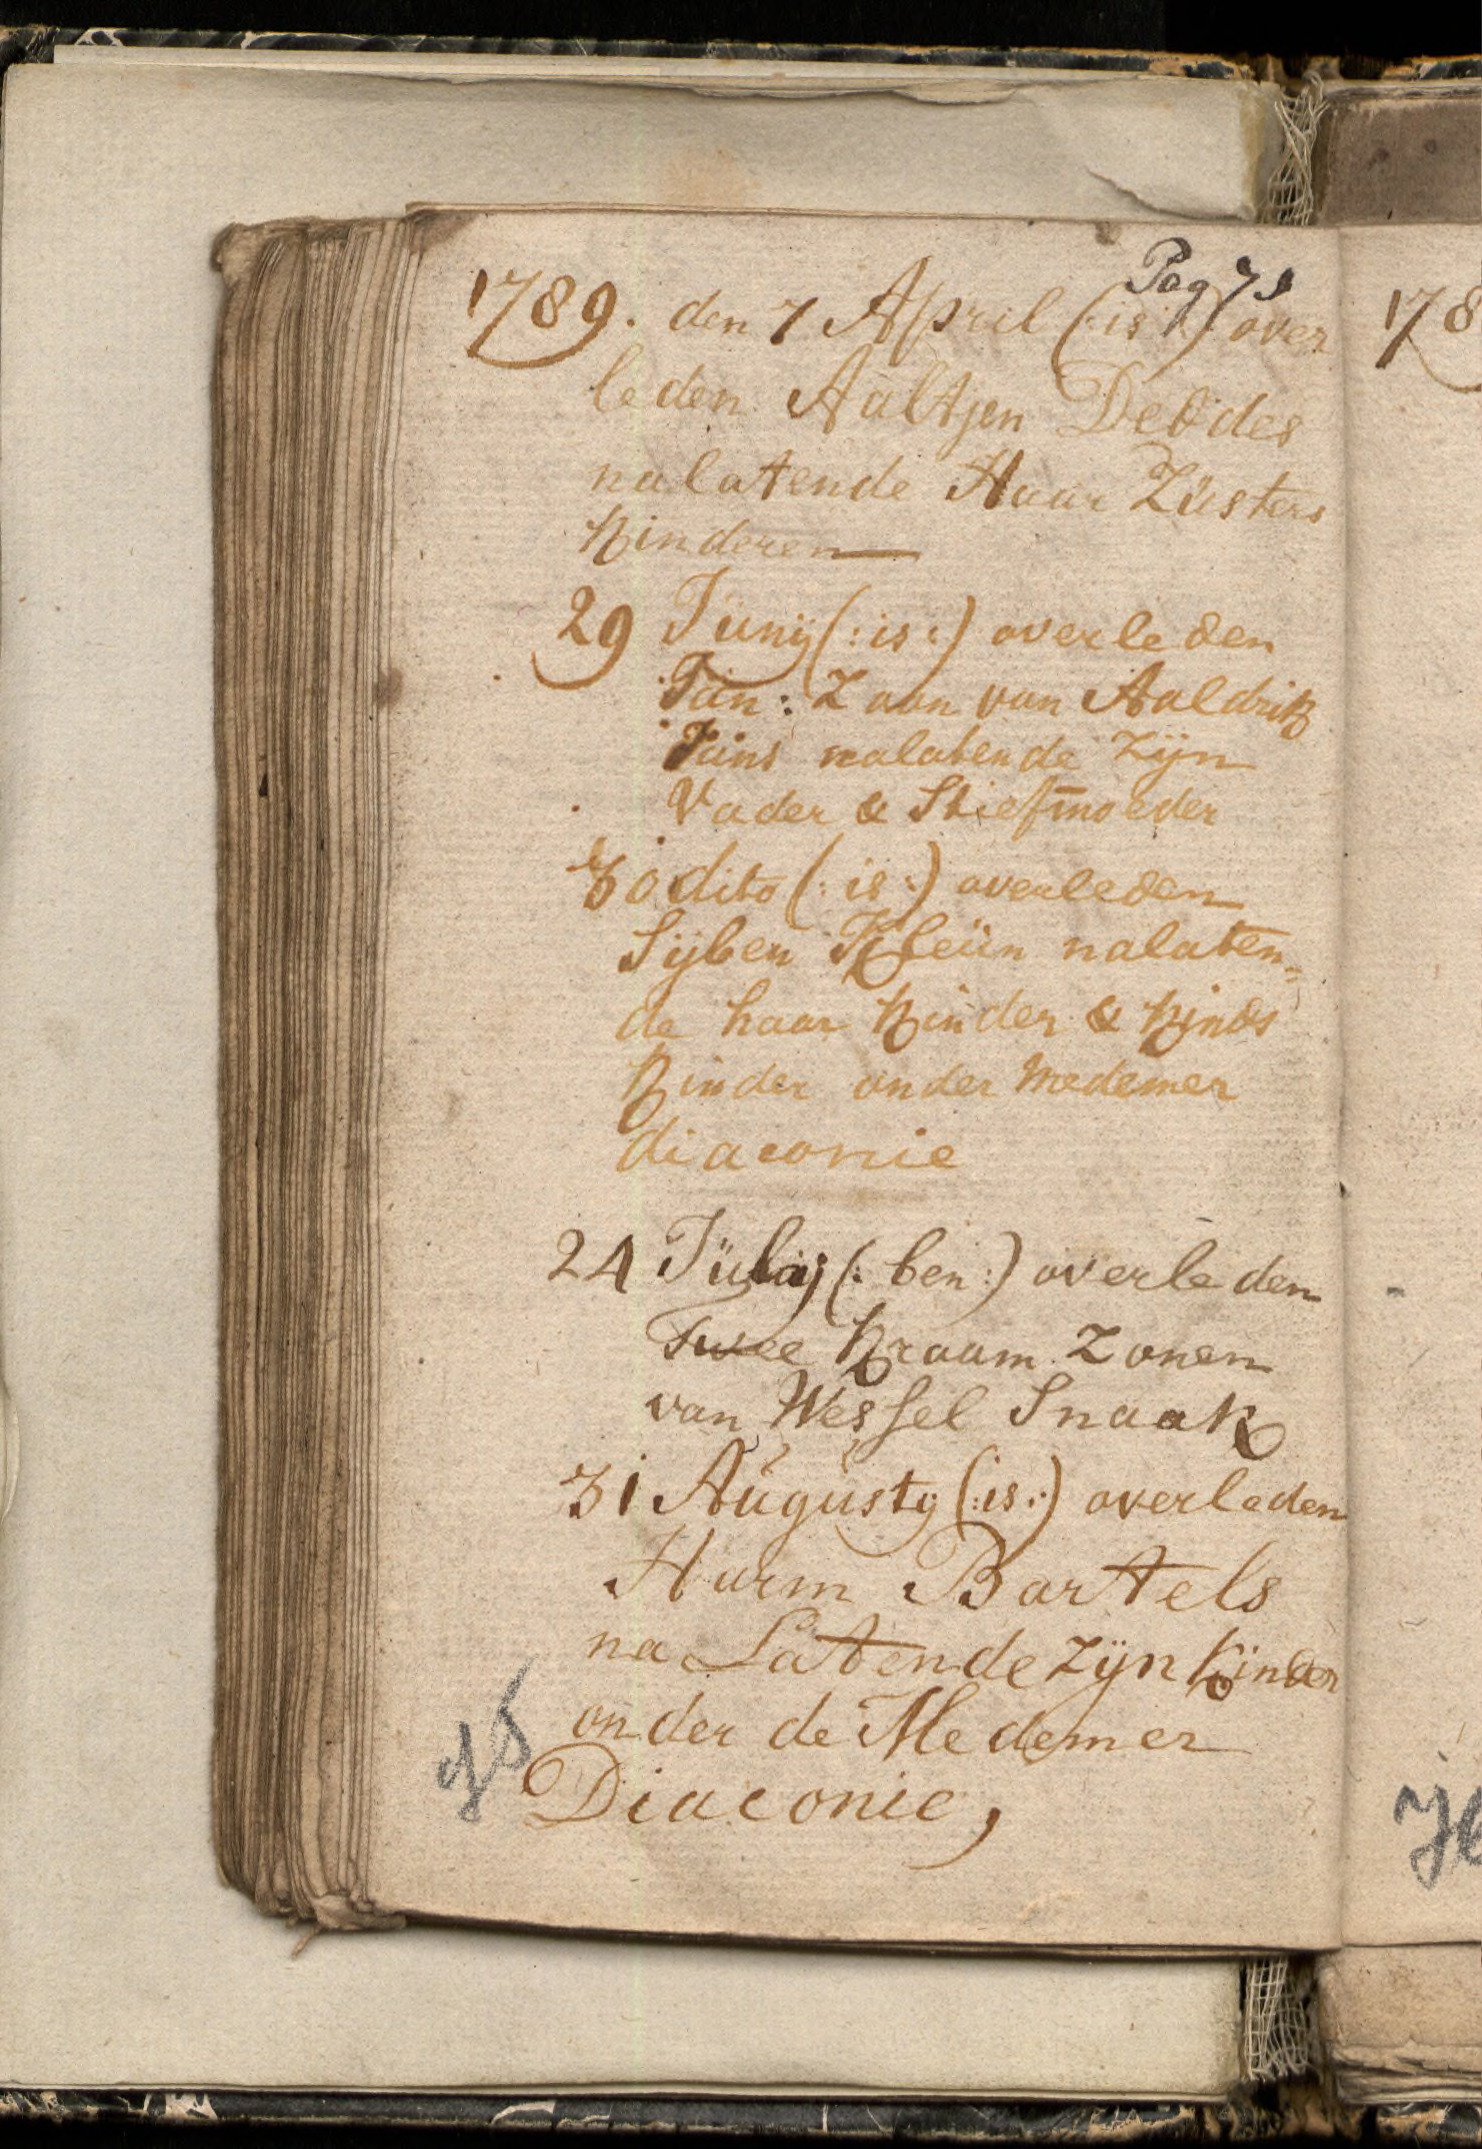 Pag 75
1789. den 7 April (:is:) over
leden Aaltjen Debdes
nalatende Haar Züsters
Kinderen
29 Junij (:is:) overleden
Jan: Zoon van Aaldrik
Jans nalatende Zijn
Vader & Stiefmoeder
30 dito (:is:) overleden
Sijben Kleün nalaten=
de haar Kinder & Kinds
Kinder onder Medemer
diaconie
24 Jülij (:ben:) overleden
Twee Kraam Zonen
van Wessel Snaak
31 Augusty (:is:) overleden
Harm Bartels
na Latende zijn kinder
onder de Medemer
Diaconie,
178